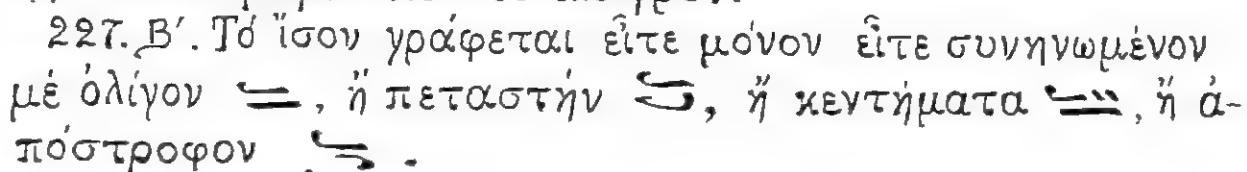 227. Β´. Τό ἴσον γράφεται εἴτε μόνον εἴτε συνηνωμένον
μέ ὀλίγον , ἤ πεταστήν , ἤ κεντήματα , ἤ ἀ-
πόστροφον .